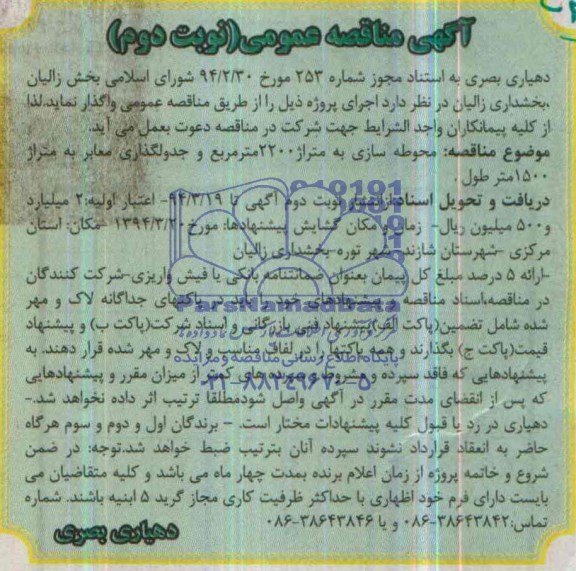 آگهی مناقصه عمومی(نوبت دوم)
دهیاری بصری به استناد مجوز شماره ۲۵۳ مورخ ۹۴/۲/۳۰ شورای اسلامی بخش زالیان
،بخشداری زالیان در نظر دارد اجرای پروژه ذیل را از طریق مناقصه عمومی واگذار نماید.لذا
از کلیه پیمانکاران واجد الشرایط جهت شرکت در مناقصه دعوت بعمل می آید.
موضوع مناقصه: محوطه سازی به متراژ۲۲۰۰مترمربع و جدولگذاری معابر به متراژ
۱۵۰۰متر طول .
دریافت و تحویل اسناد:ازانتشار نوبت دوم آگهی تا ۹۴/۳/۱۹- اعتبار اولیه:۲ میلیارد
و۵۰۰ میلیون ریال- زمان و مکان گشایش پیشنهادها: مورخ۱۳۹۴/۳/۲۰ -مکان: استان
مرکزی -شهرستان شازند- شهر توره-بخشداری زالیان
-ارائه ۵ درصد مبلغ کل پیمان بعنوان ضمانتنامه بانکی یا فیش واریزی-شرکت کنندگان
در مناقصه،اسناد مناقصه و پیشنهادهای خود را باید در پاکتهای جداگانه لاک و مهر
شده شامل تضمین(پاکت الف)پیشنهاد فنی بازرگانی و اسناد شرکت(پاکت ب) و پیشنهاد
قیمت(پاکت ج) بگذارند و همه پاکتها را در لفاف مناسب و لاک و مهر شده قرار دهند. به
پیشنهادهایی که فاقد سپرده و مشروط و سپرده های کمتر از میزان مقرر و پیشنهادهایی
که پس از انقضای مدت مقرر در آگهی واصل شودمطلقا ترتیب اثر داده نخواهد شد.-
دهیاری در رد یا قبول کلیه پیشنهادات مختار است. - برندگان اول و دوم و سوم هرگاه
حاضر به انعقاد قرارداد نشوند سپرده آنان بترتیب ضبط خواهد شد.توجه: در ضمن
شروع و خاتمه پروژه از زمان اعلام برنده بمدت چهار ماه می باشد و کلیه متقاضیان می
بایست دارای فرم خود اظهاری با حداکثر ظرفیت کاری مجاز گرید ۵ ابنیه باشند. شماره
تماس:۳۸۶۴۳۸۴۲-۰۸۶ و یا ۳۸۶۴۳۸۴۶-۰۸۶
دهیاری بصری
ParsNamadData
پایگاه اطلاع رسانی مناقصه و مزایده
۰۲۱-۸۸۳۴۹۶۷۰-۵